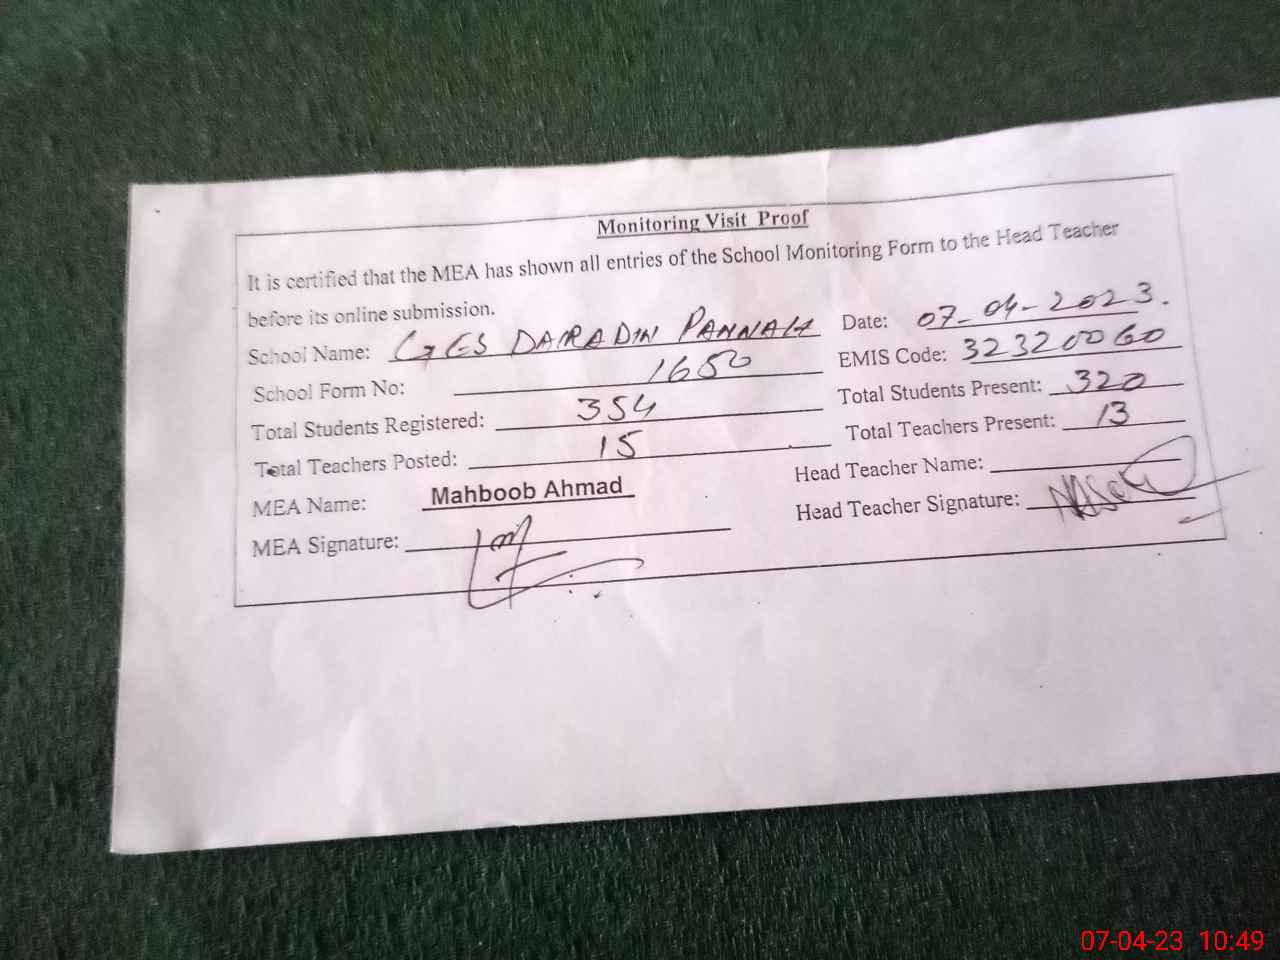 Monitoring Visit Proof
It is certified that the MEA has shown all entries of the School Monitoring Form to the Head Teacher
before its online submission.
School Name: GES DAIRA DIN PANNAH Date: 07-04-2023.
School Form No: 1650 EMIS Code: 32320060
Total Students Registered: 354 Total Students Present: 320
Total Teachers Posted: 15 Total Teachers Present: 13
MEA Name: Mahboob Ahmad Head Teacher Name:
MEA Signature: Head Teacher Signature:
07-04-23 10:49